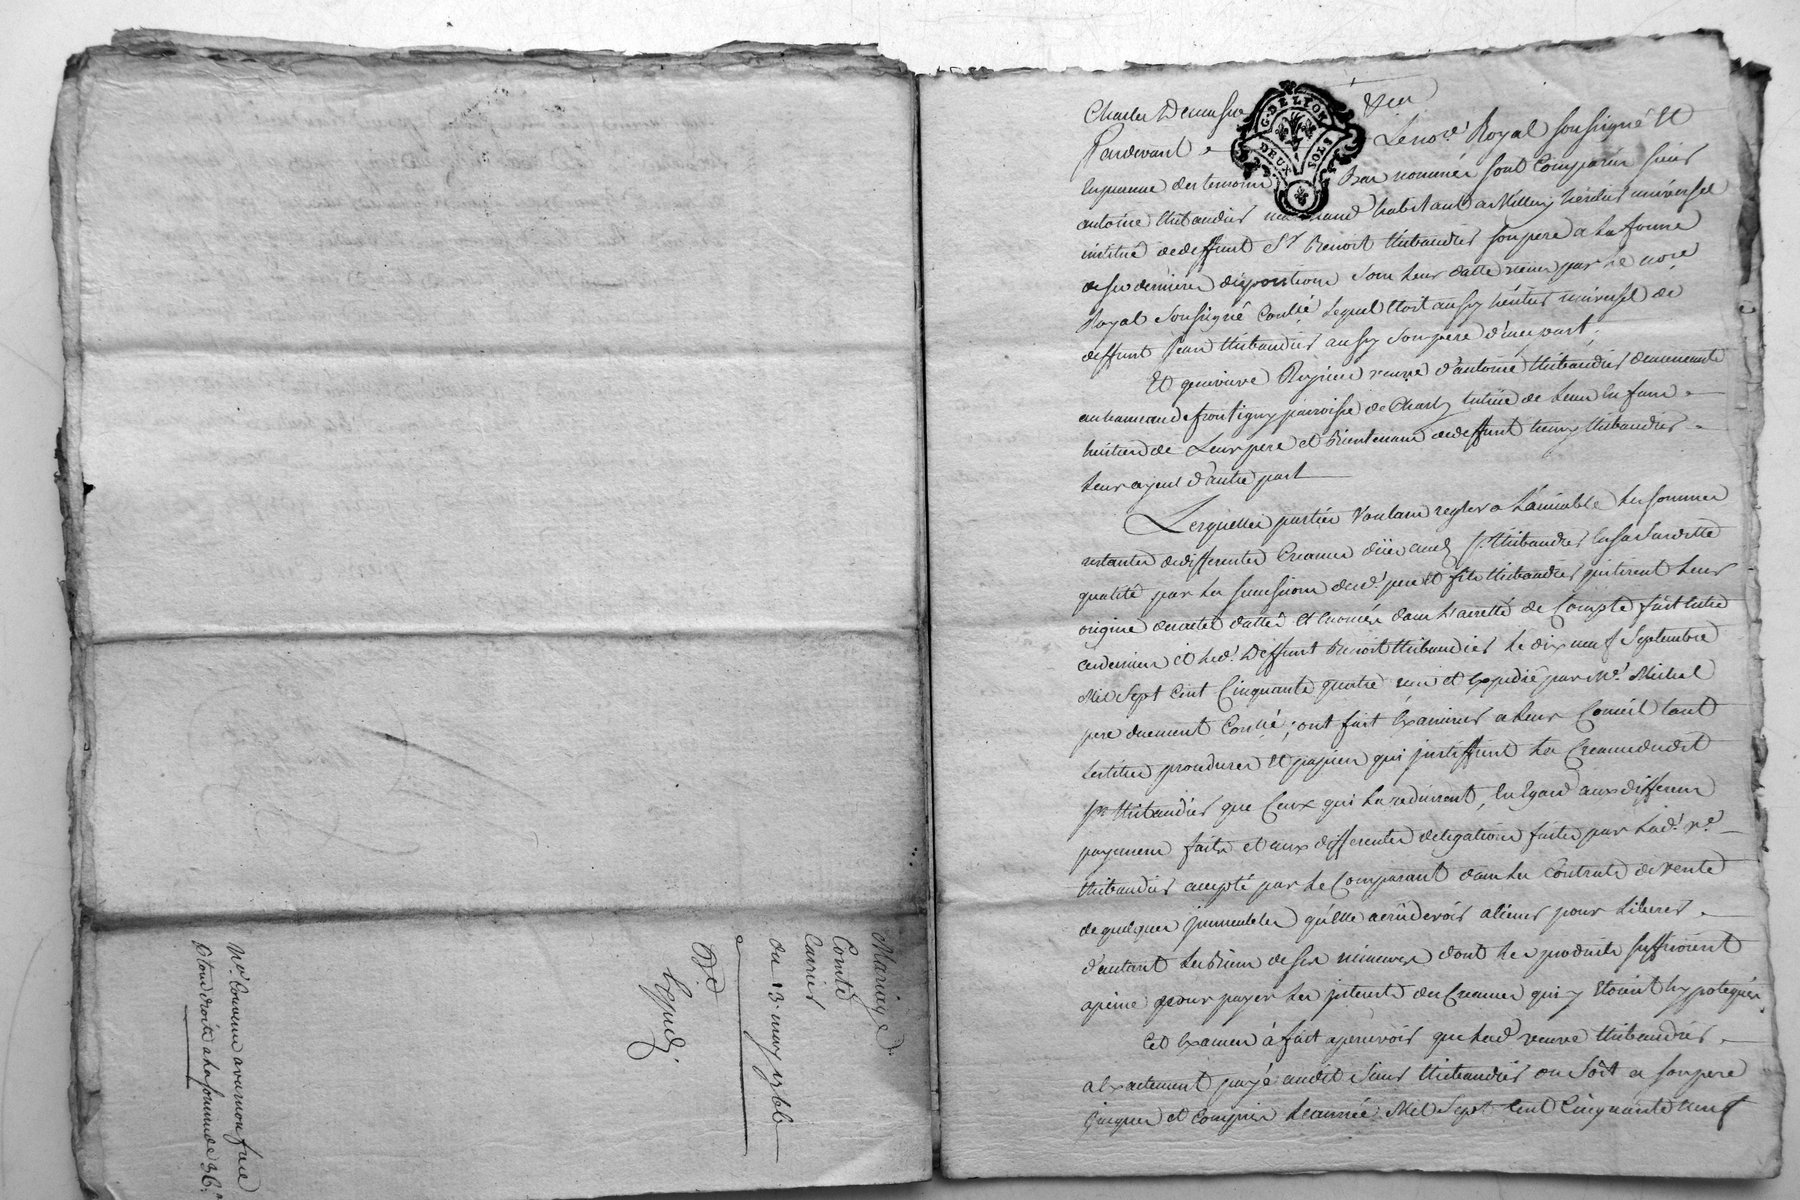 Mariage
Comte
Currier
du 13 may 1766
Bd
Expedié
Charles
G. DE LION
DEUX SOLS
Pardevant Le no.re Royal soussigné Et
En presence des temoins Bas nommés sont Comparus sieur
antoine thibaudier marchand habitant a Millery héritier universel
institué de deffunt Sr Benoit thibaudier son pere a La forme
de ses dernieres dispositions sous Leur datte reçues par Le no.re
Royal soussigné Coulié Lequel Etoit aussy héritier universel de
deffunt Jean thibaudier aussy son pere d'une part.
Et genevieve veuve d'antoine thibaudier demeurante
au hameau de frontigny parroisse de Charly tutrice de Leurs Enfans
héritiers de Leur pere et Bientenans de deffunt thibaudier
Leur ayeul d'autre part
Lesquelles parties voulant regler a L'amiable Les sommes
restantes de differentes Creances dües aud. Sr. thibaudier En sa susditte
qualité par les successions desd. pere Et fils thibaudier qui tirent Leur
origine dattés Et Enoncés dans L'arretté de Compte fait Entre
ce dernier et Led. Deffunt Benoit thibaudier Le dix neuf Septembre
Mil Sept Cent Cinquante quatre reçu et Expedié par Me. Michel
pere duement Conllé; ont fait Examiner a Leur Conseil tant
Les titres procedures Et papiers qui justiffient La Creance dudit
Sr thibaudier que Ceux qui La reduisent, En Egard aux differens
payemens faits et aux differentes delegations faites par Lad. ve.
thibaudier accepté par Le Comparant dans Les Contrats de vente
de quelques immeubles qu'elle a crü devoir aliener pour Liberer
d'autant Les Biens de ses mineurs dont Les produits suffisoient
a peine pour payer Les interets des Creances qui y Etoient hypotequées
Cet Examen à fait apercevoir que Lad. veuve thibaudier
a Exactement payé audit Sieur thibaudier ou Soit a son pere
jusques et Compris L'année Mil Sept Cent Cinquante neuf